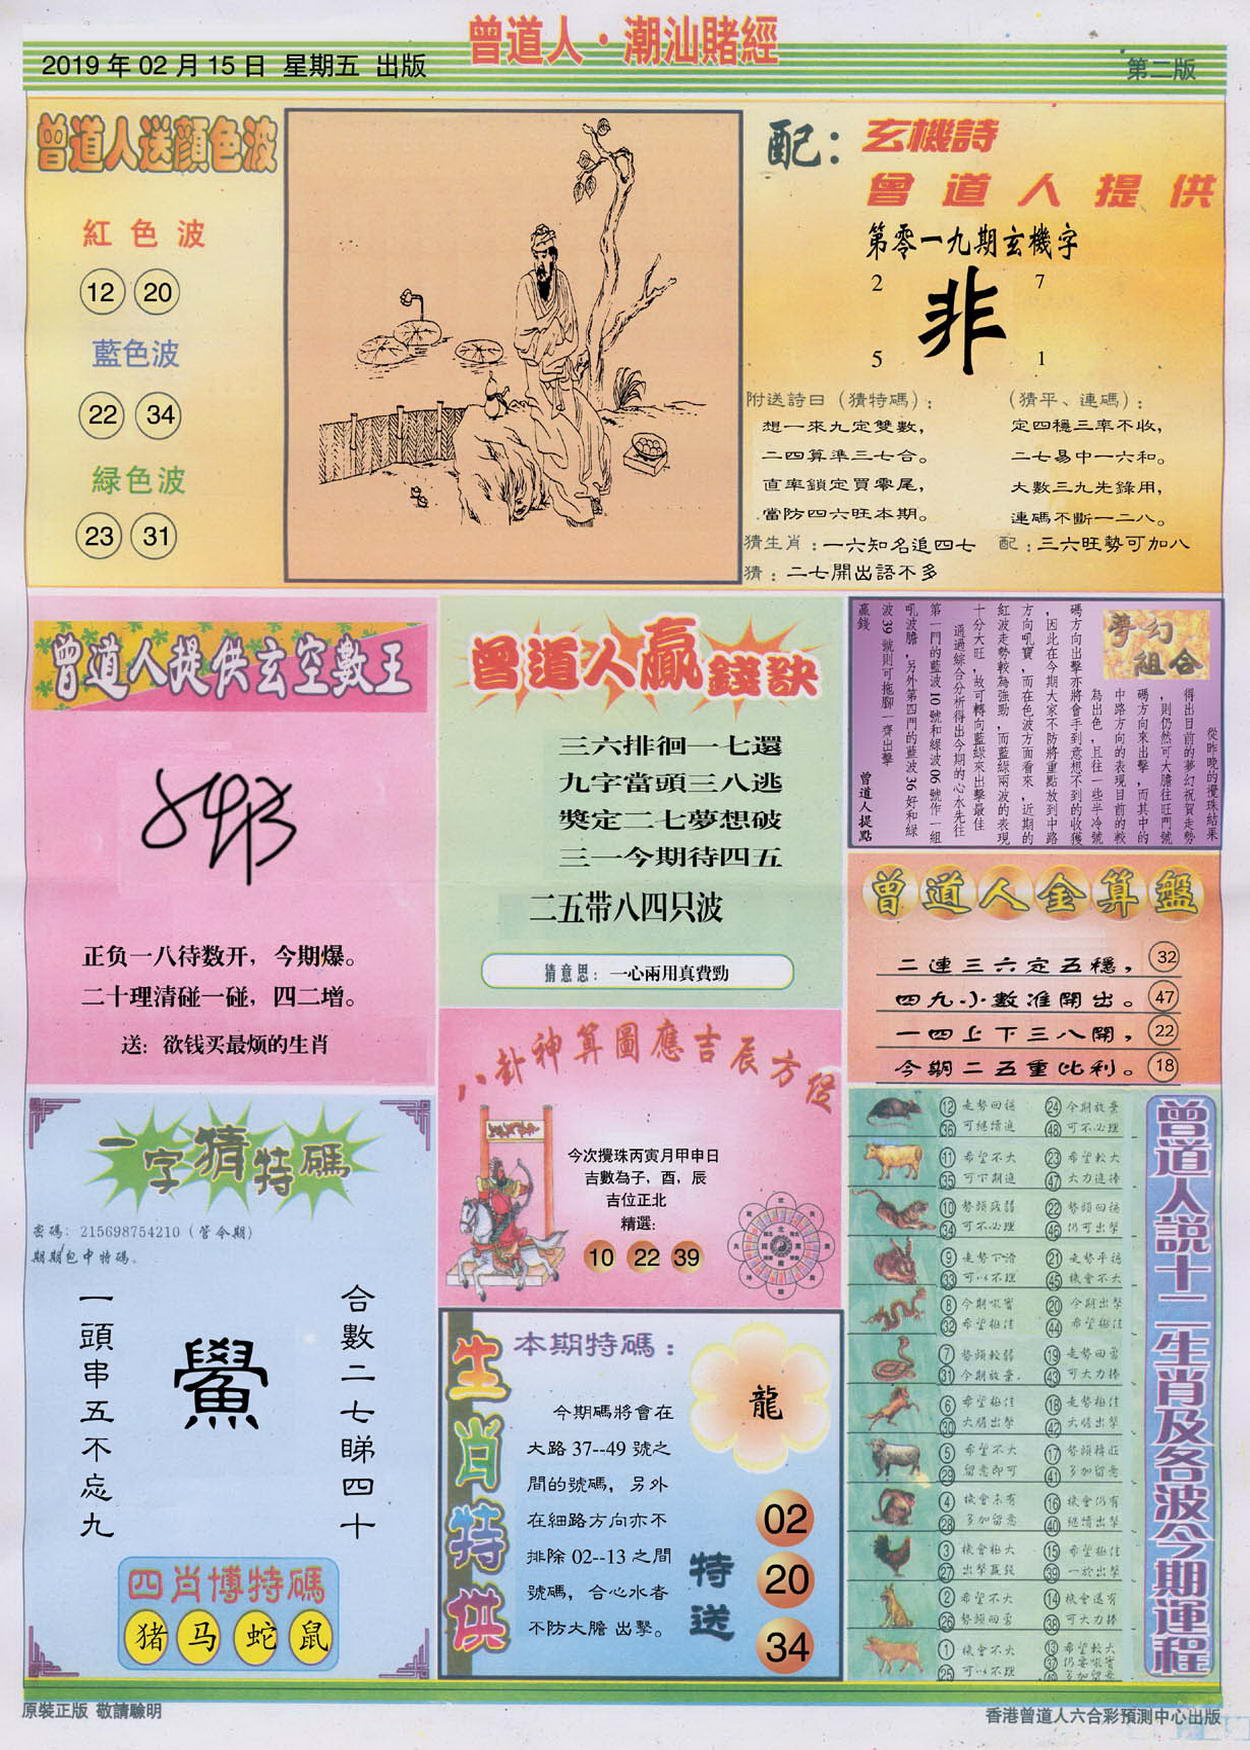 曾道人·潮汕賭經
2019 年 02 月 15 日 星期五 出版
第二版
曾道人送顔色波
紅色波
12 20
藍色波
22 34
緑色波
23 31
配：玄機詩
曾道人提供
第零一九期玄機字
2 7
非
5 1
附送詩曰（猜特碼）：
想一來九定雙數，
二四算準三七合。
直率鎖定買零尾，
當防四六旺本期。
（猜平、連碼）：
定四穩三率不收，
二七易中一六和。
大數三九先錄用，
連碼不斷一二八。
猜生肖：一六知名追四七
配：三六旺勢可加八
猜：二七開出語不多
曾道人提供玄空數王
正负一八待数开，今期爆。
二十理清碰一碰，四二增。
送：欲钱买最烦的生肖
曾道人贏錢訣
三六排徊一七還
九字當頭三八逃
獎定二七夢想破
三一今期待四五
二五带八四只波
猜意思：一心兩用真費勁
夢幻組合
從昨晚的攪珠結果
得出目前的夢幻祝賀走勢
，則仍然可大膽往旺門號
碼方向來出擊，而其中的
中路方向的表現目前的較
為出色，且往一些半冷號
碼方向出擊亦將會手到意想不到的收獲
，因此在今期大家不防將重點放到中路
方向吼寶，而在色波方面看來，近期的
紅波走勢較為強勁，而藍綠兩波的表現
十分大旺，故可轉向藍綠來出擊最佳
通過綜合分析得出今期的心水先往
第一門的藍波 10 號和綠波 06 號作一組
吼波膽，另外第四門的藍波 36 好和綠
波 39 號則可拖腳一齊出擊
贏錢 曾道人提點
曾道人金算盤
二連三六定五穩， 32
四九小數准開出。 47
一四上下三八開， 22
今期二五重比利。 18
八卦神算圖應吉辰方位
今次攪珠丙寅月甲申日
吉數為子，酉，辰
吉位正北
精選:
10 22 39
一字猜特碼
密碼：215698754210（管今期）
期期包中特碼。
合數二七睇四十
鱟
一頭串五不忘九
四肖博特碼
猪 马 蛇 鼠
生肖特供
本期特碼：
龍
今期碼將會在
大路 37--49 號之
間的號碼，另外
在細路方向亦不
排除 02--13 之間
號碼，合心水者
不防大膽 出擊。
特送
02
20
34
曾道人說十二生肖及各波今期運程
12 走勢回穩 24 今期放棄
36 可繼續追 48 可不必理
11 希望不大 23 希望較大
35 可下期追 47 大力追捧
10 勢頭疲弱 22 勢頭回穩
34 可不必理 46 仍可出擊
9 走勢下滑 21 走勢平穩
33 可以不理 45 機會不大
8 今期吼寶 20 今期出擊
32 希望極佳 44 希望極佳
7 勢頭較弱 19 走勢回勇
31 今期放棄. 43 可大力捧
6 希望極佳 18 走勢極佳
30 大膽出擊 42 大膽出擊
5 希望不大 17 勢頭轉旺
29 留意即可 41 多加留意
4 機會未有 16 機會仍有
28 多加留意 40 繼續出擊
3 機會極大 15 希望極佳
27 出擊 39 一於出擊
2 希望不大 14 機會還有
26 勢頭回勇 38 可大力捧
1 機會不大 13 希望較大
25 可以不理 37 仍要吼實
49 多加留意
原裝正版 敬請驗明
香港曾道人六合彩預測中心出版